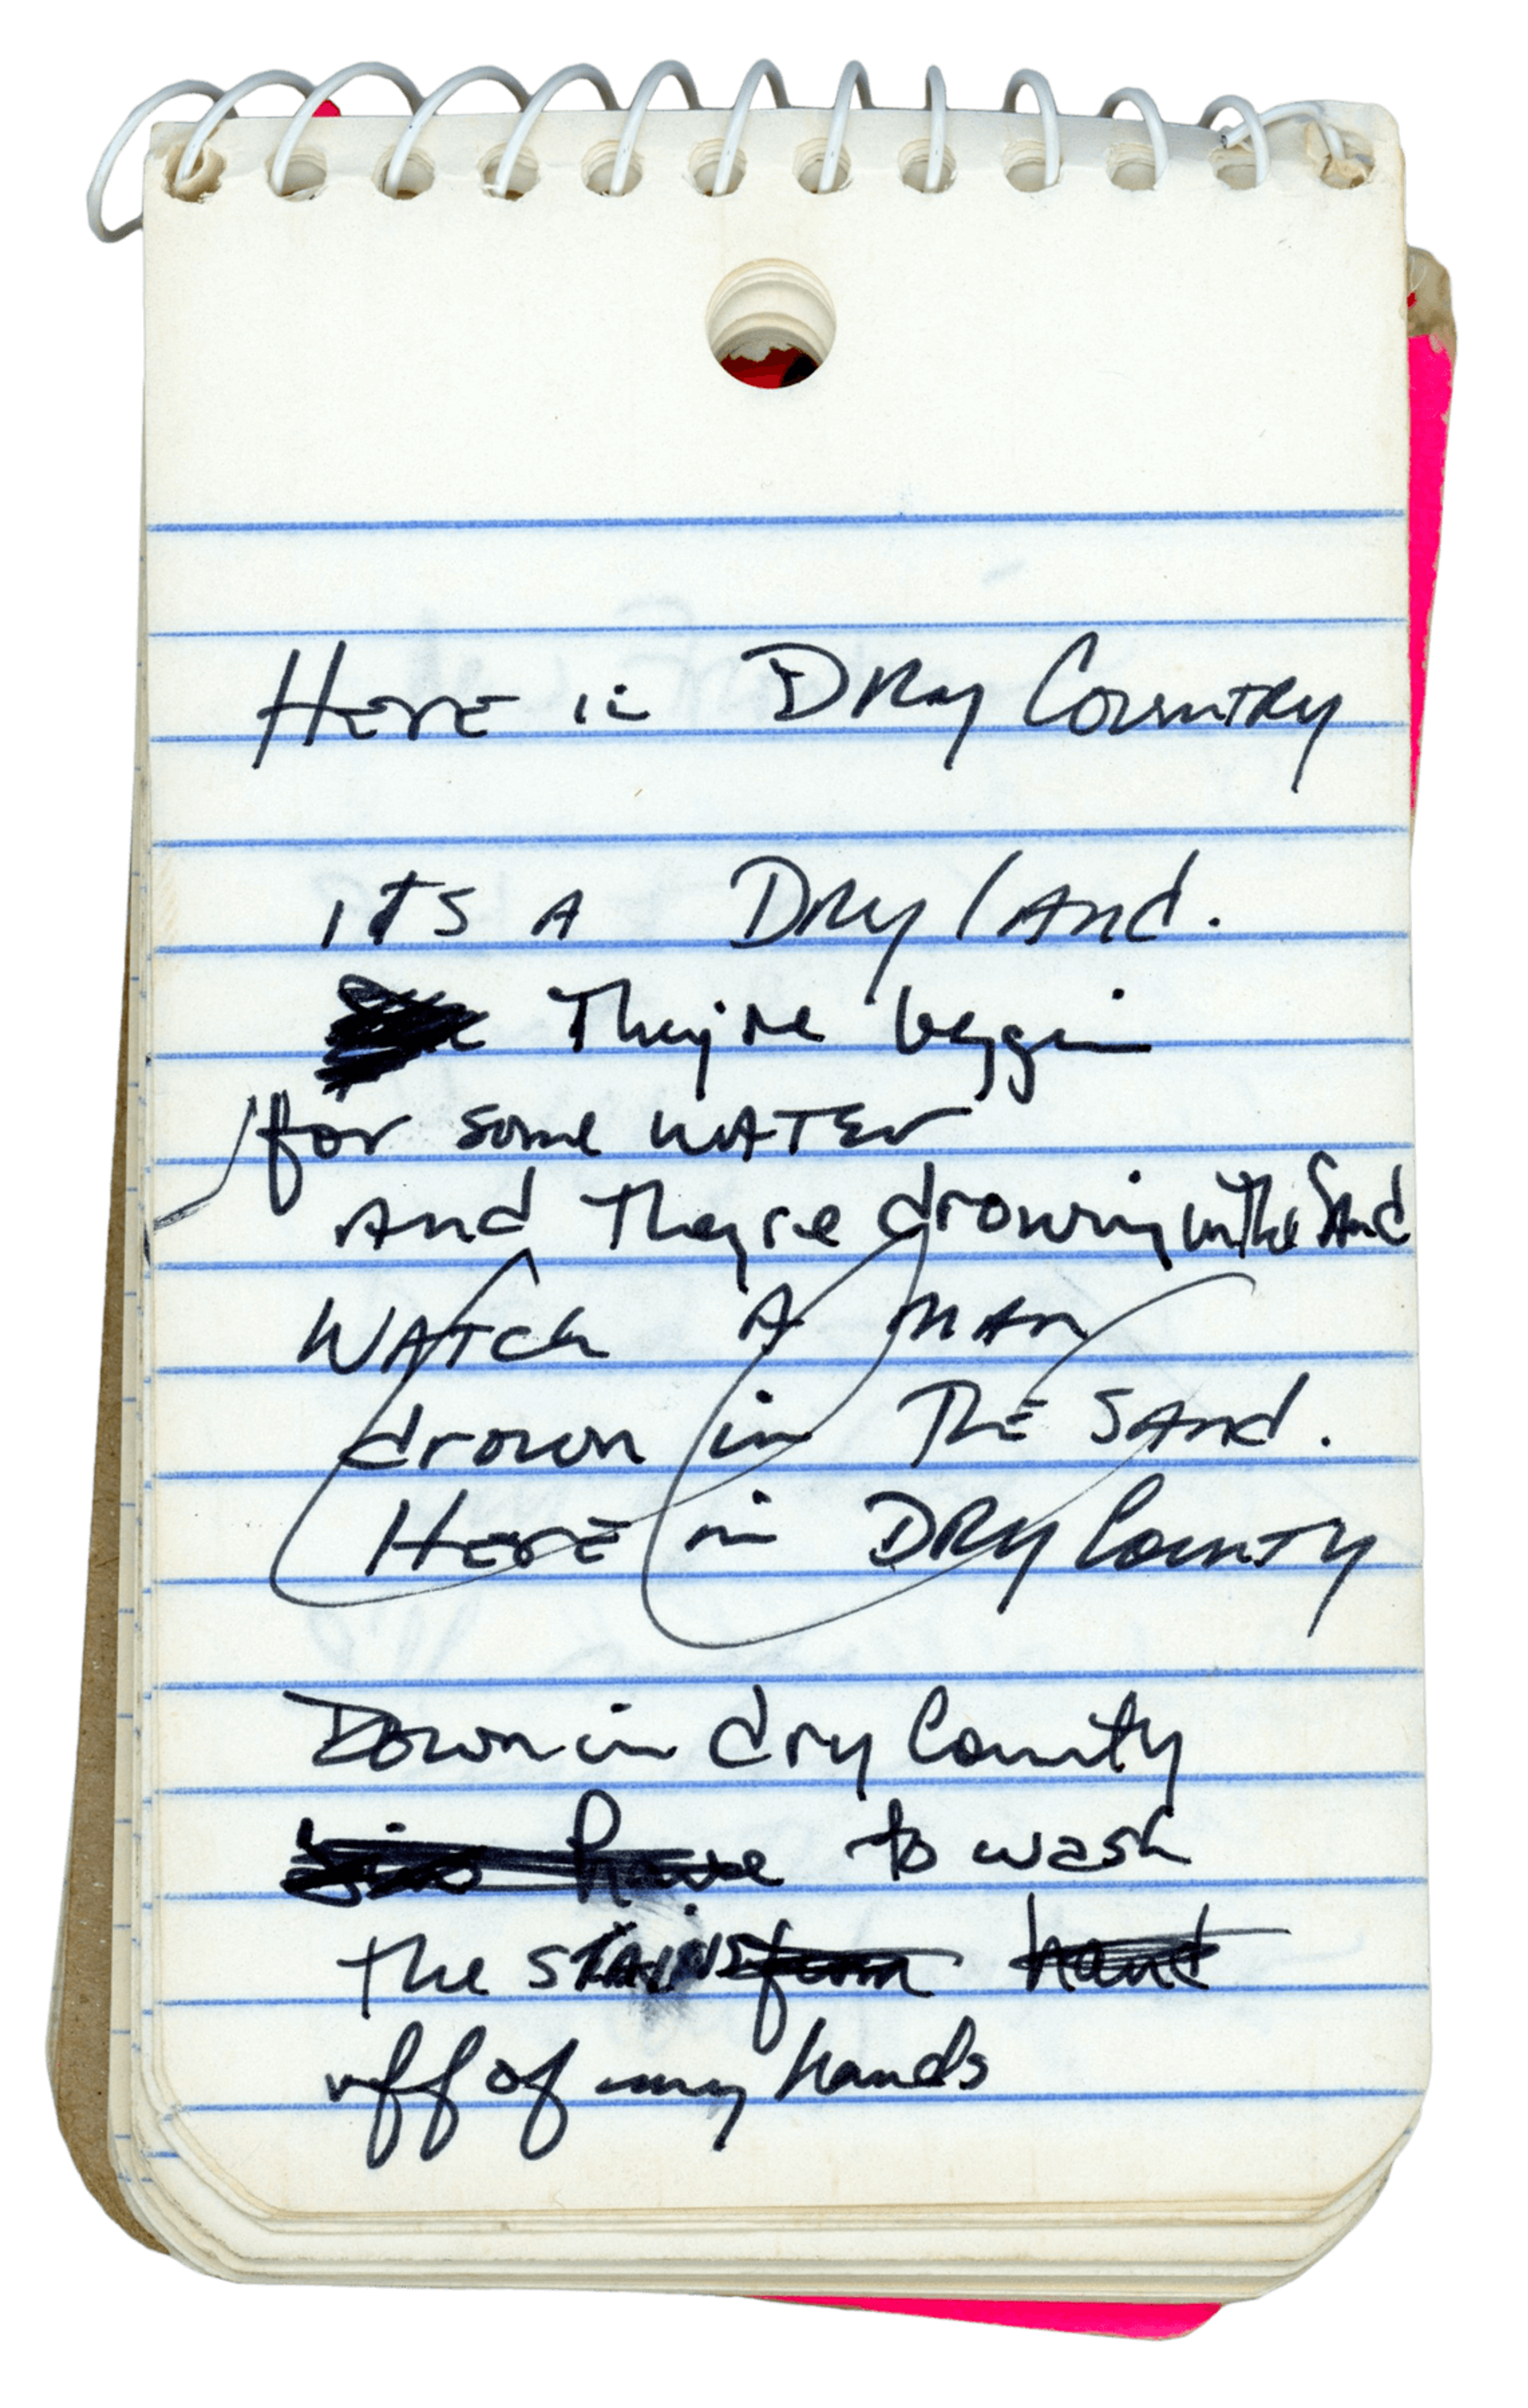 HERE in DRY COUNTRY
ITS A DRY LAND.
They're beggin
for some WATER
AND They're drowning in The SAnd
WATCH A MAN
drown in THE SAND.
HERE in DRY COUNTY
Down in dry County
have to wash
the STAINS from hand
off of my hands